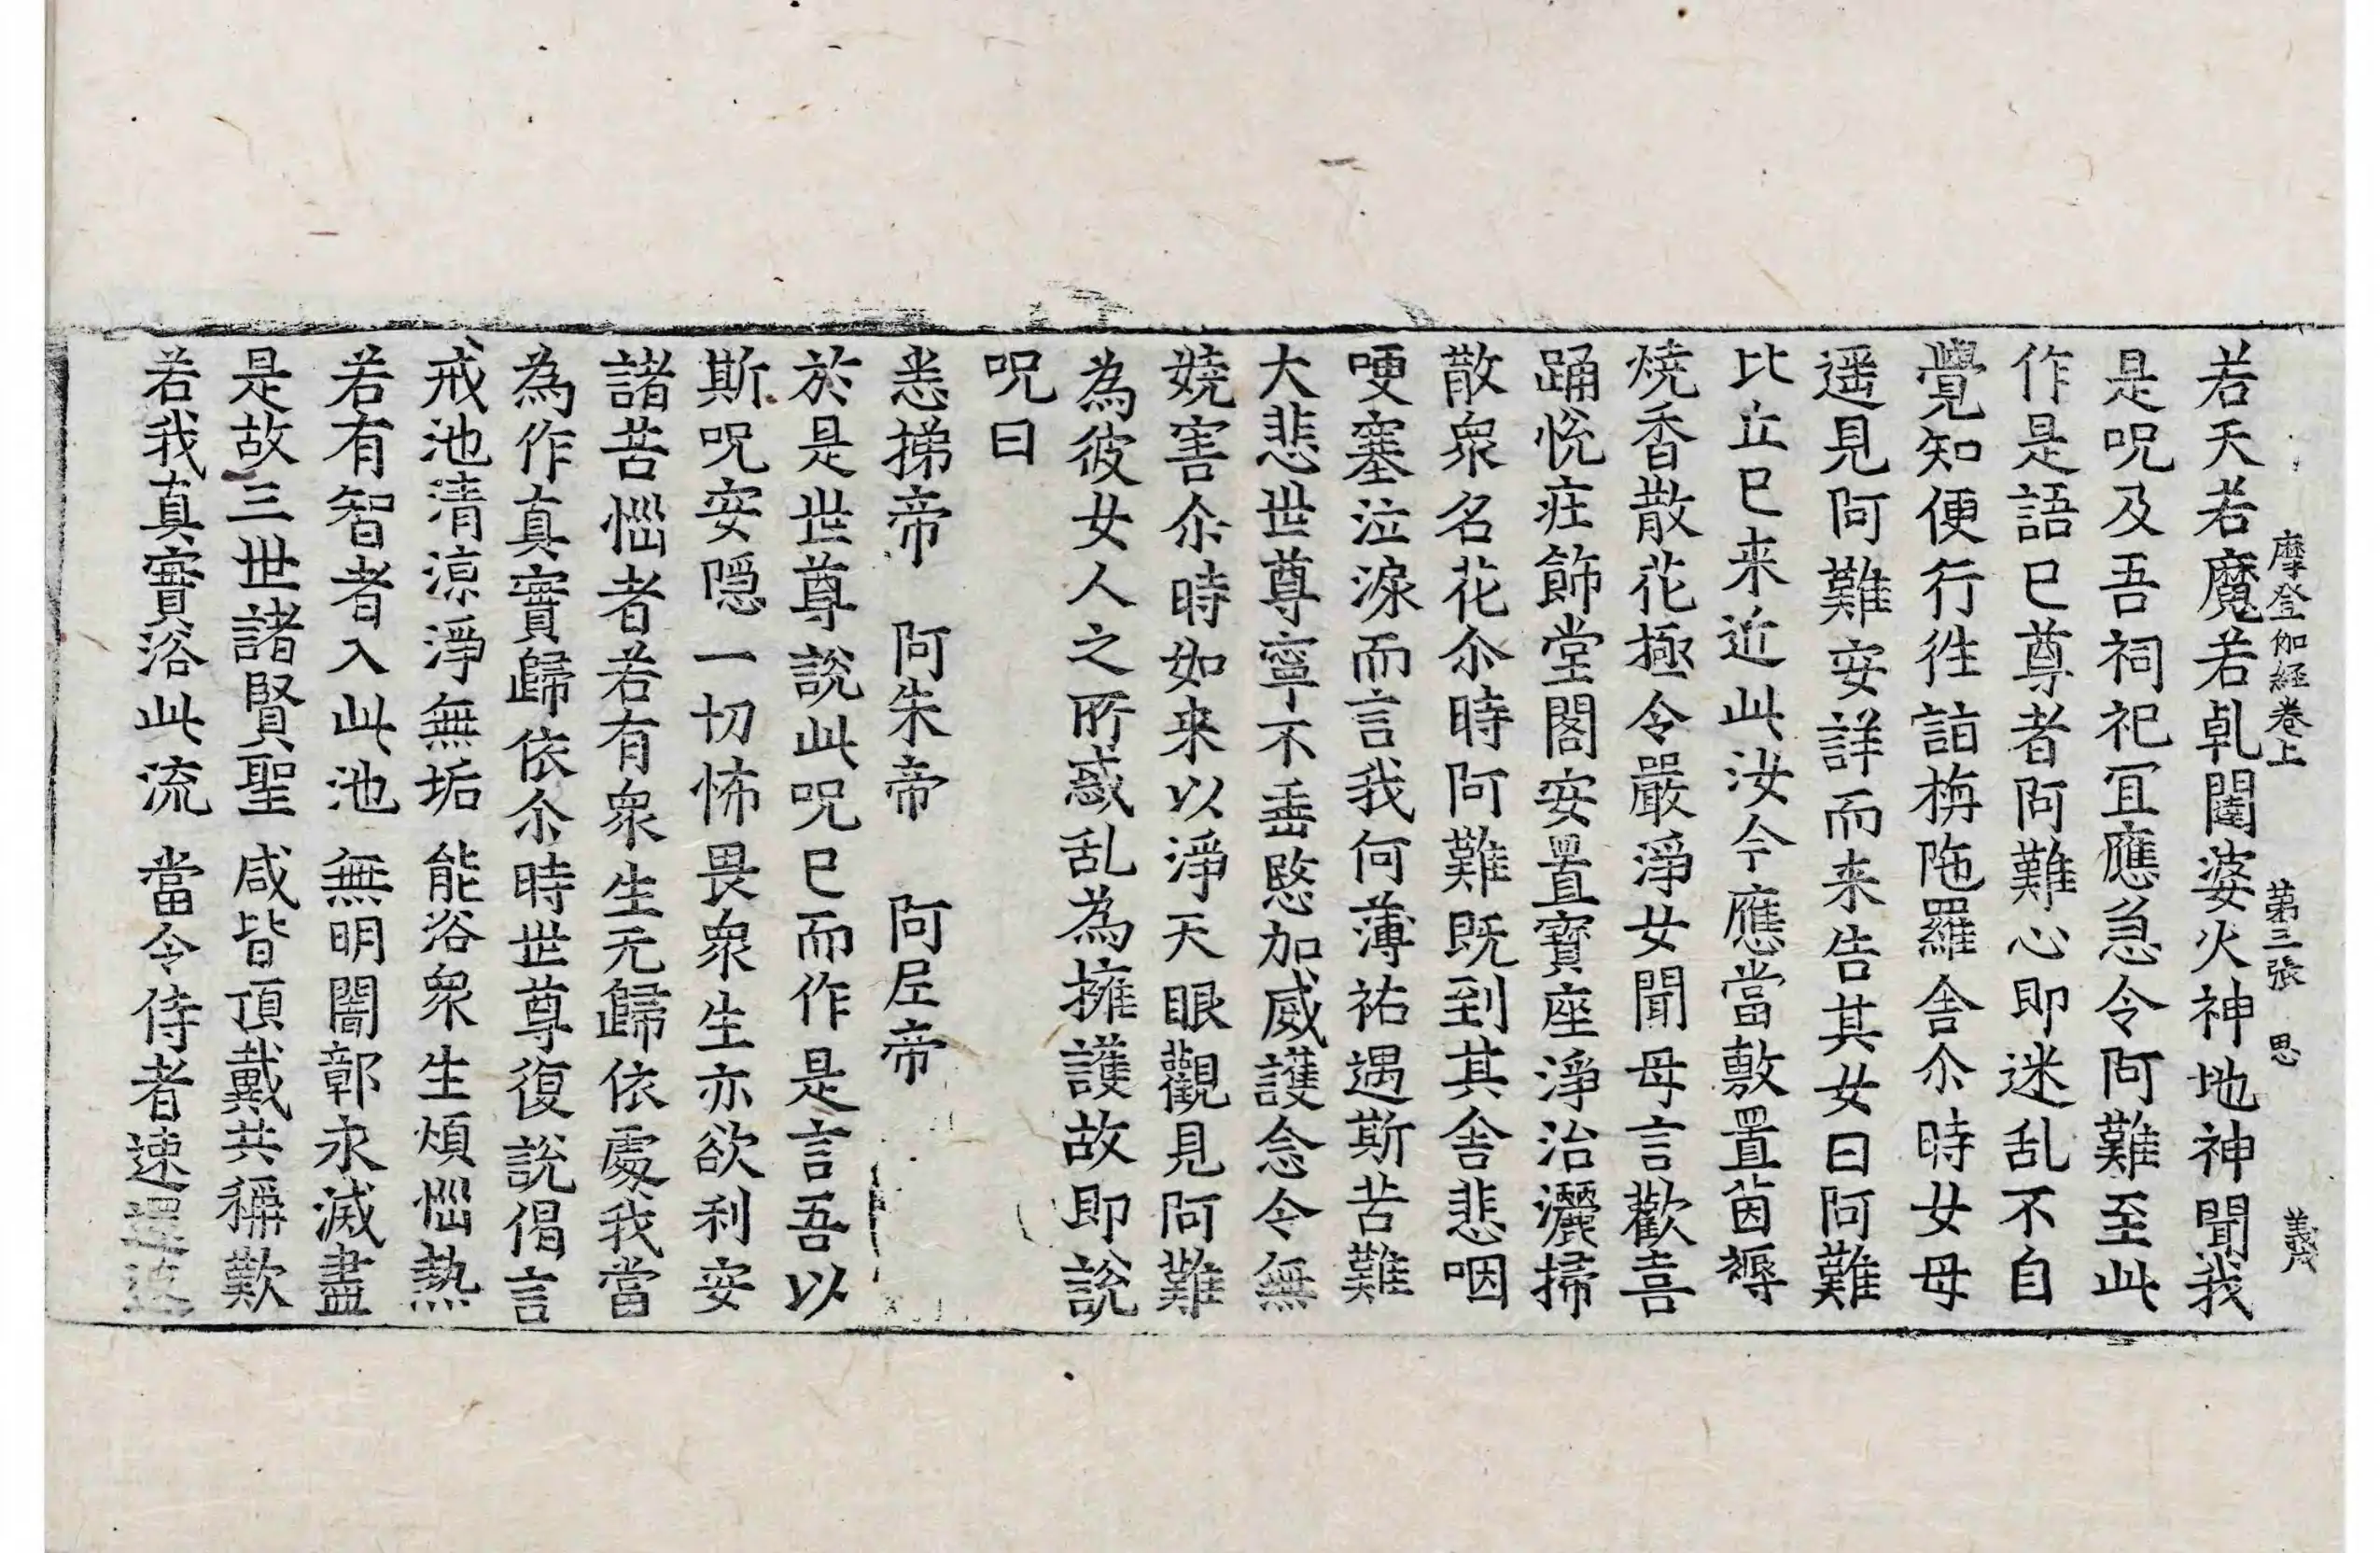 摩登伽經卷上 第三張 思 義茂
若天若魔若乹闥婆火神地神聞我
是呪及吾祠祀冝應急令阿難至此
作是語已尊者阿難心即迷乱不自
覺知便行徃詣栴陁羅舎尒時女母
遥見阿難安詳而来告其女曰阿難
比丘已来近此汝今應當敷置茵褥
燒香散花極令嚴淨女聞母言歡喜
踊悅庄飾堂閣安置寶座淨治灑掃
散衆名花尒時阿難既到其舎悲咽
哽塞泣淚而言我何薄祐遇斯苦難
大悲世尊寧不垂愍加威護念令無
嬈害尒時如来以淨天眼觀見阿難
為彼女人之所惑乱為擁護故即說
呪曰
悉㨑帝 阿朱帝 阿𡰱帝
於是世尊說此呪已而作是言吾以
斯呪安隠一切怖畏衆生亦欲利安
諸苦惱者若有衆生无歸依處我當
為作真實歸依尒時世尊復說偈言
戒池清涼淨無垢 能浴衆生煩惱熱
若有智者入此池 無明闇鄣永滅盡
是故三世諸賢聖 咸皆頂戴共稱歎
若我真實浴此流 當令侍者速還